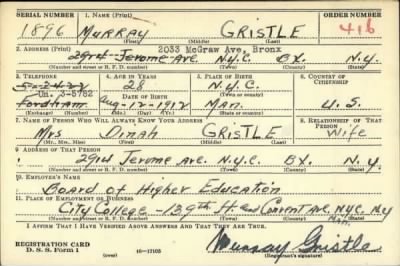 SERIAL NUMBER 1. NAME (Print) ORDER NUMBER
1896 MURRAY GRISTLE 416
(First) (Middle) (Last)
2. ADDRESS (Print) 2033 McGraw Ave, Bronx
2914 Jerome Ave. N.Y.C. BX. N.Y.
(Number and street or R. F. D. number) (Town) (County) (State)
3. TELEPHONE 4. AGE IN YEARS 5. PLACE OF BIRTH 6. COUNTRY OF
28 N.Y.C. CITIZENSHIP
5-5762 DATE OF BIRTH (Town or county)
Fordham Aug-12-1912 Man. U.S.
(Exchange) (Number) (Mo.) (Day) (Yr.) (State or country)
7. NAME OF PERSON WHO WILL ALWAYS KNOW YOUR ADDRESS 8. RELATIONSHIP OF THAT
PERSON
Mrs Dinah GRISTLE Wife
(Mr., Mrs., Miss) (First) (Middle) (Last)
9. ADDRESS OF THAT PERSON
2914 Jerome Ave. N.Y.C. BX. N.Y.
(Number and street or R. F. D. number) (Town) (County) (State)
10. EMPLOYER'S NAME
Board of Higher Education
11. PLACE OF EMPLOYMENT OR BUSINESS
City College - 139th St and Convent Ave. NYC. NY
Man.
(Number and street or R. F. D. number) (Town) (County) (State)
I AFFIRM THAT I HAVE VERIFIED ABOVE ANSWERS AND THAT THEY ARE TRUE.
REGISTRATION CARD
D. S. S. Form 1 16-17105 Murray Gristle
(Registrant's signature)